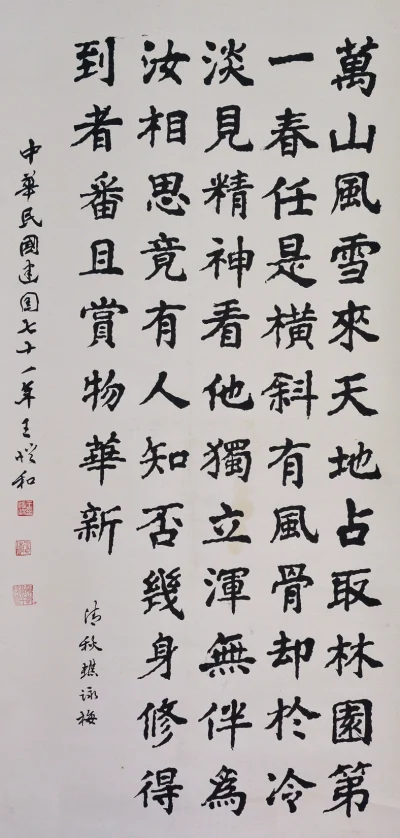 萬山風雪來天地占取林園第
一春任是橫斜有風骨却於冷
淡見精神看他獨立渾無伴為
汝相思竟有人知否幾身修得
到者番且賞物華新
清秋樵詠梅
中華民國建国七十一年王愷和